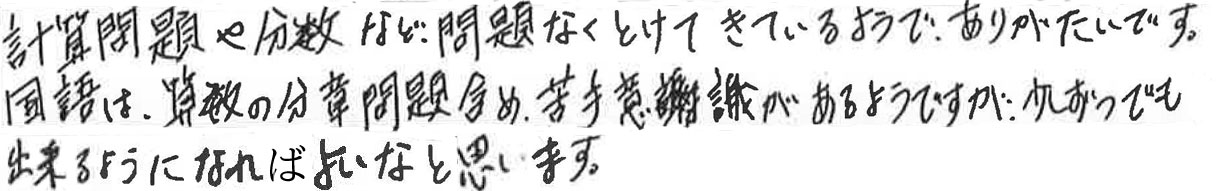 計算問題や分数など、問題なくとけてきているようで、ありがたいです。
国語は、算数の分章問題含め、苦手意識があるようですが、少しずつでも
出来るようになればよいなと思います。